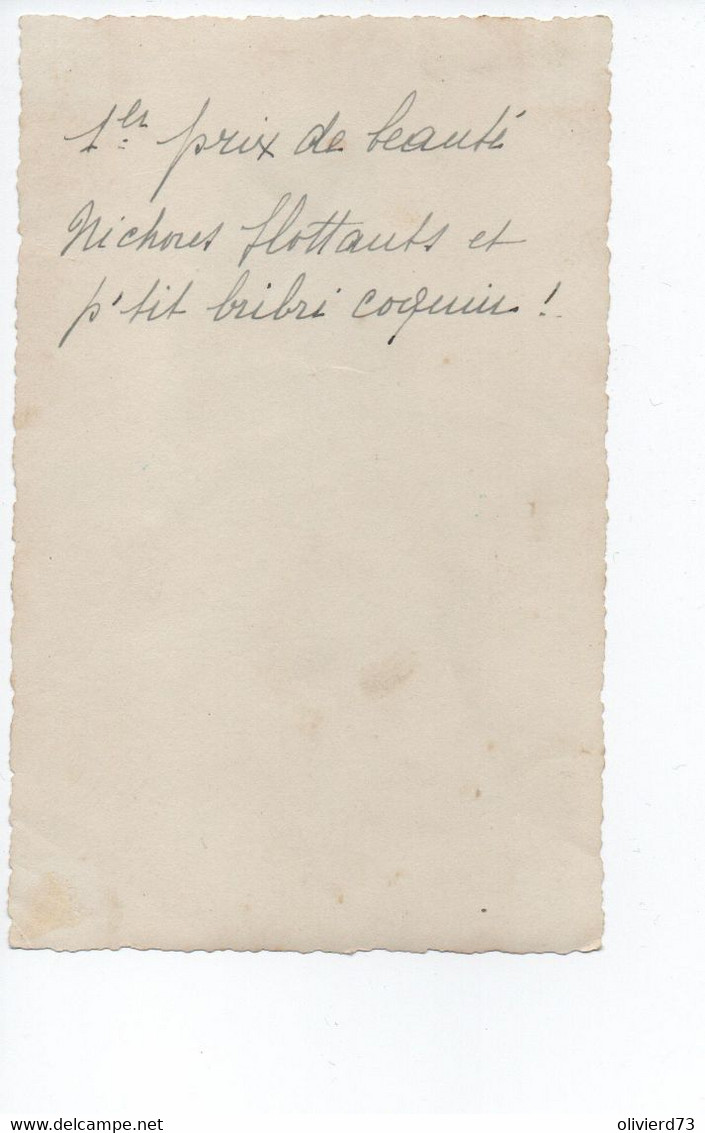 1er prix de beauté
Nichons flottants et
p'tit bribri coquin !
delcampe.net
olivierd73